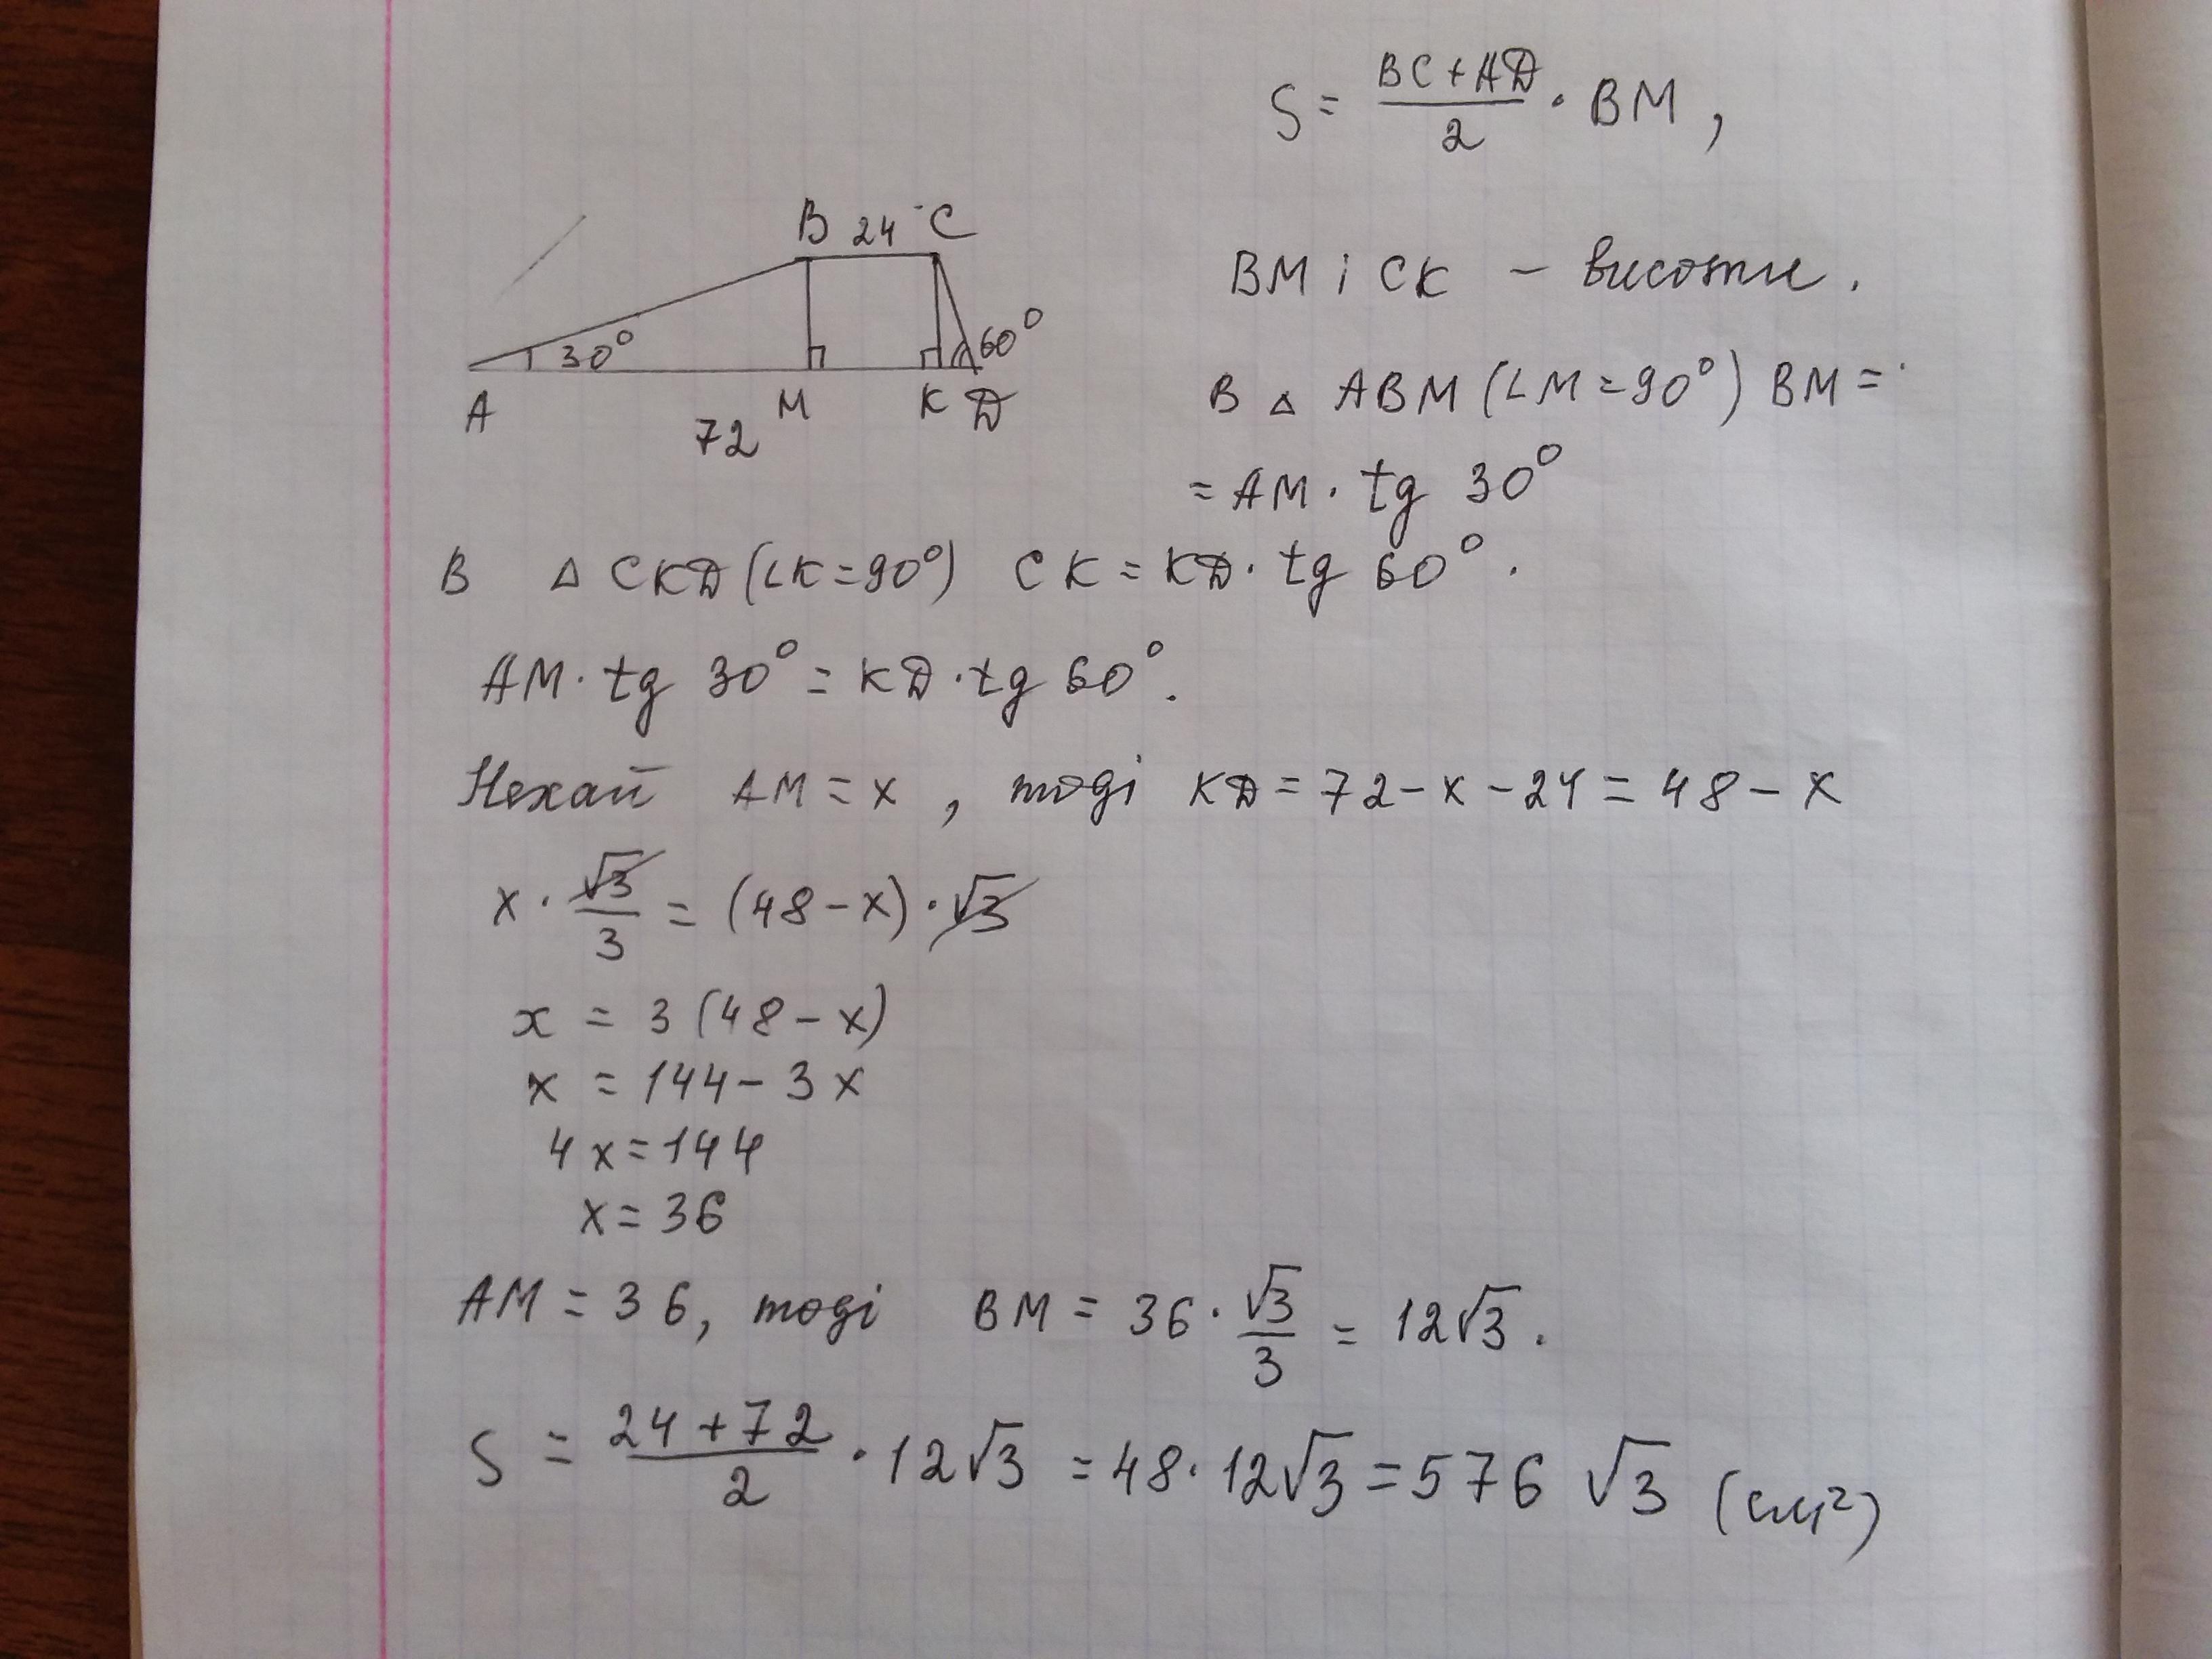 S = (BC + AD)/2 · BM,
B 24 C
30° 60°
A M K D
72
BM і CK – висоти.
В △ ABM (∠M = 90°) BM =
= AM · tg 30°
В △ CKD (∠K = 90°) CK = KD · tg 60°.
AM · tg 30° = KD · tg 60°.
Нехай AM = x, тоді KD = 72 – x – 24 = 48 – x
x · √3/3 = (48 – x) · √3
x = 3 (48 – x)
x = 144 – 3x
4x = 144
x = 36
AM = 36, тоді BM = 36 · √3/3 = 12√3.
S = (24 + 72)/2 · 12√3 = 48 · 12√3 = 576 √3 (см²)